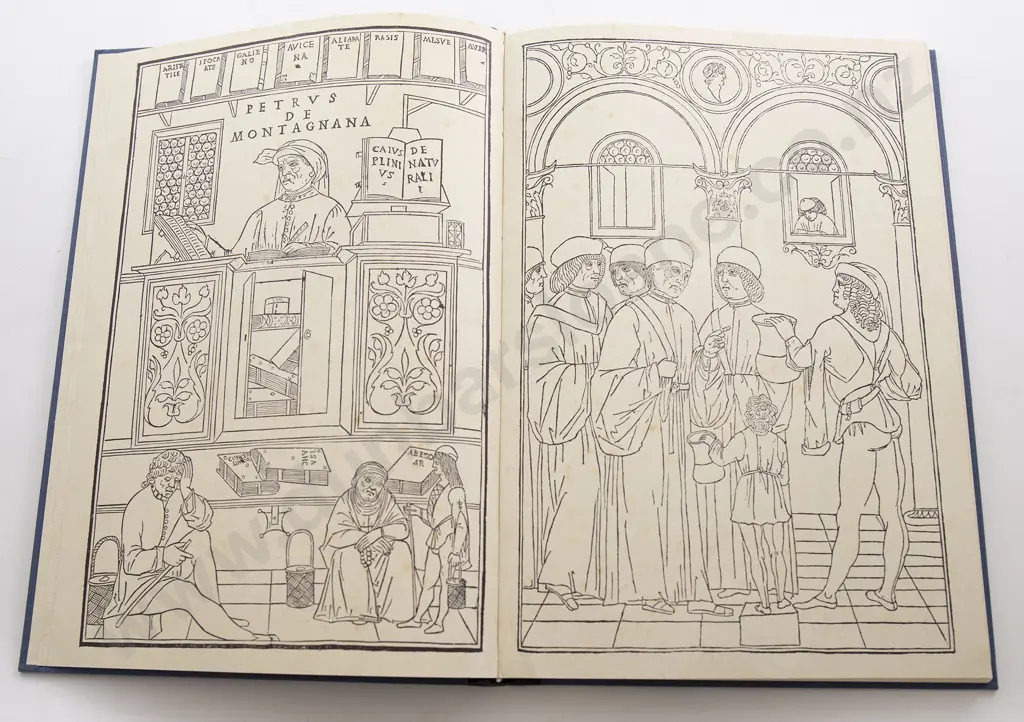 ARISTO
TILE
IPOCR
ATE
GALIE
NO
AVICE
NA
ALIABA
TE
RASIS
MESVE
AVER
PETRVS
DE
MONTAGNANA
CAIVS
PLINI
VS
DE
NATV
RALI
ISA
AHC
ABEZO
AR